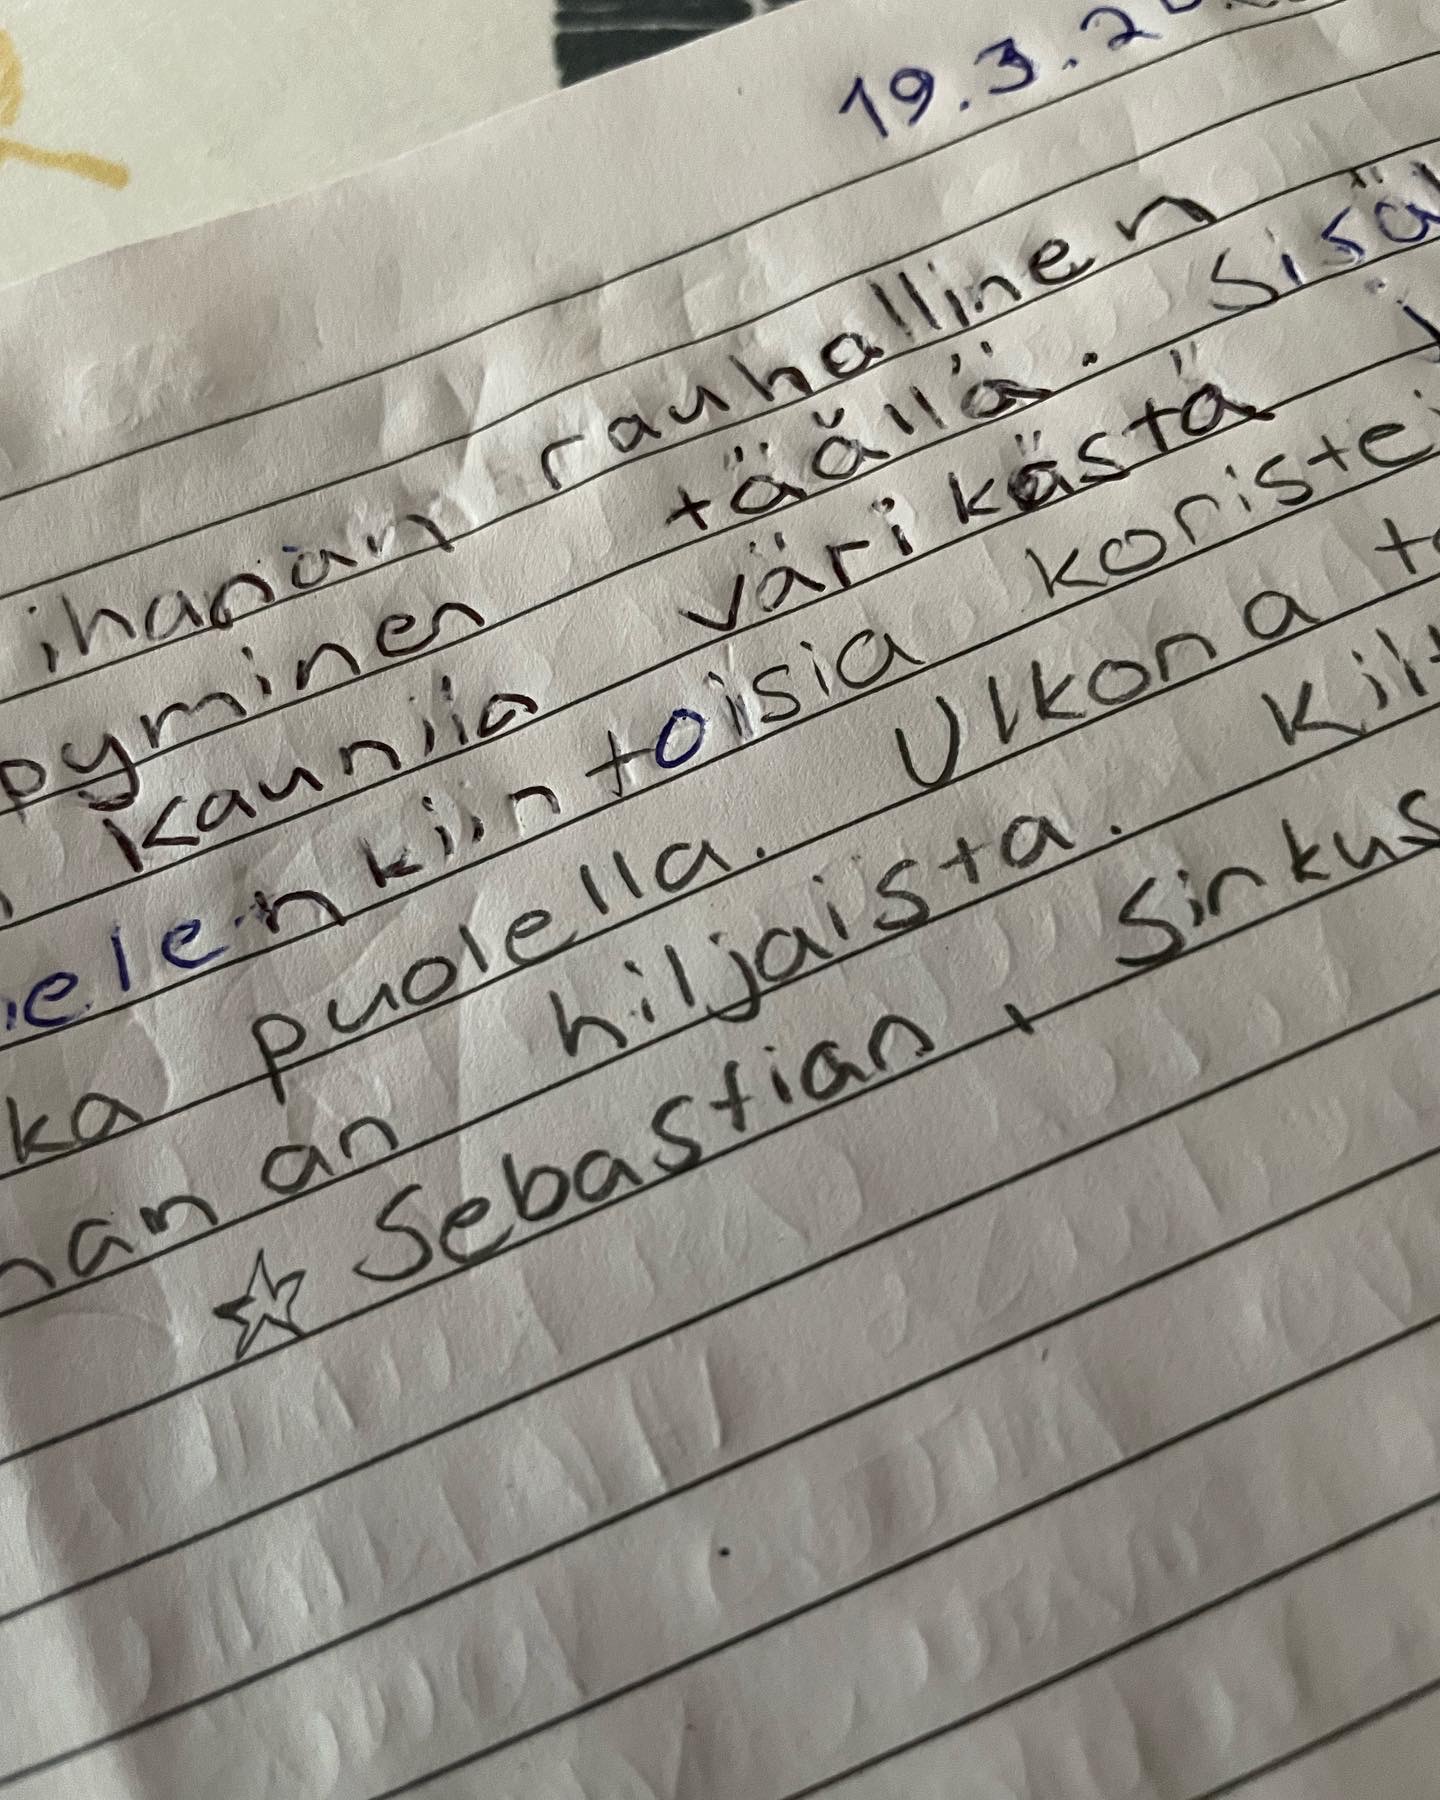 19.3.2
ihanan rauhallinen
pyminen täällä. Sisäl
Kauniia värikästä j
elenkiintoisia koristei
ka puolella. Ulkona to
han an hiljaista. Kilt
☆ Sebastian, Sinkus